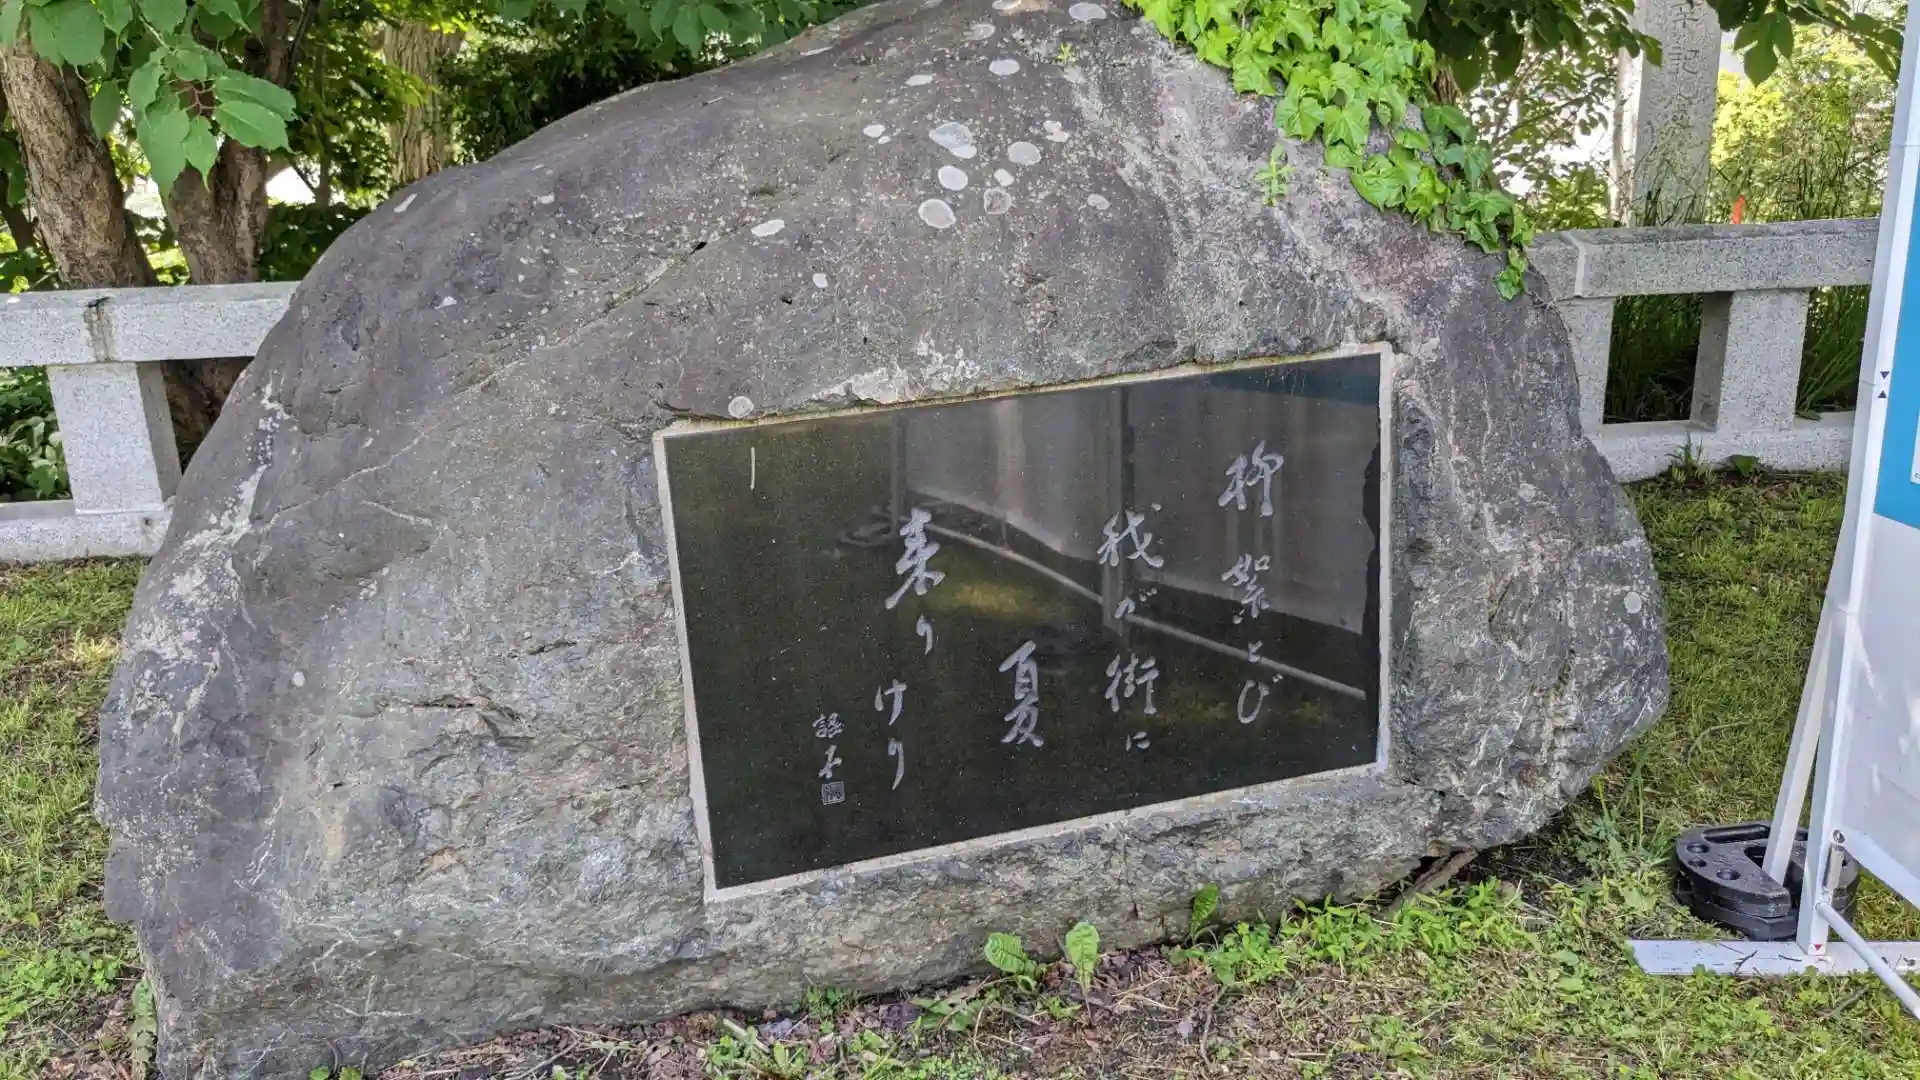 柳絮とび
我が街に
夏
来りけり